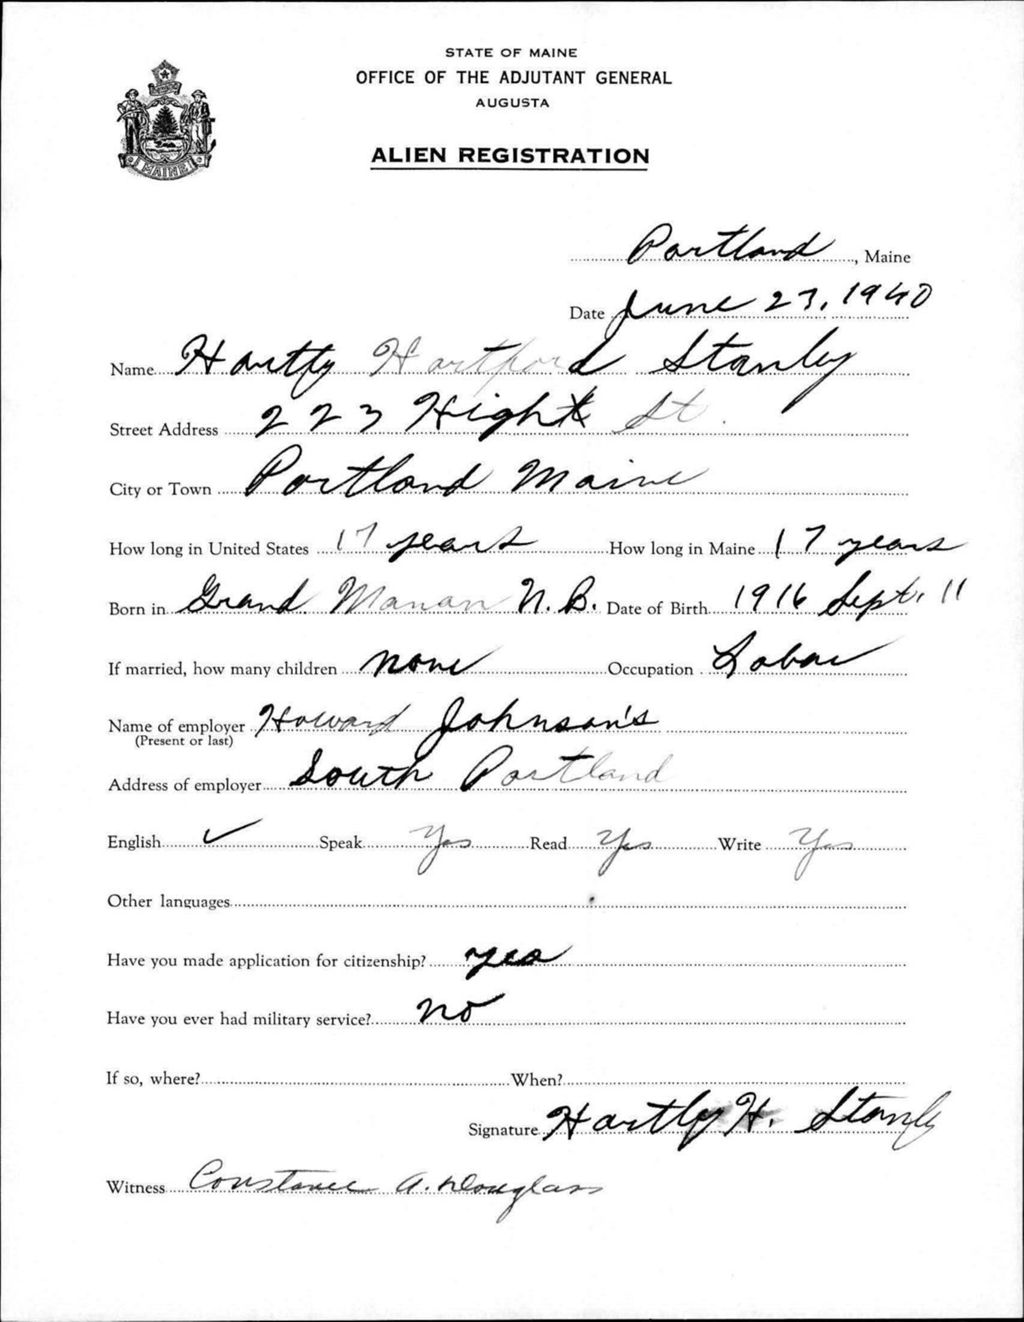 STATE OF MAINE
OFFICE OF THE ADJUTANT GENERAL
AUGUSTA
ALIEN REGISTRATION
MAINE
Portland, Maine
Date June 27, 1940
Name Hartly Hartford Stanly
Street Address 223 High St.
City or Town Portland Maine
How long in United States 17 years How long in Maine 17 years
Born in Grand Manan N. B. Date of Birth 1916 Sept. 11
If married, how many children none Occupation Labor
Name of employer Howard Johnson's
(Present or last)
Address of employer South Portland
English ✓ Speak Yes Read Yes Write Yes
Other languages
Have you made application for citizenship? yes
Have you ever had military service? no
If so, where? When?
Signature Hartly H. Stanly
Witness Constance A. Douglass